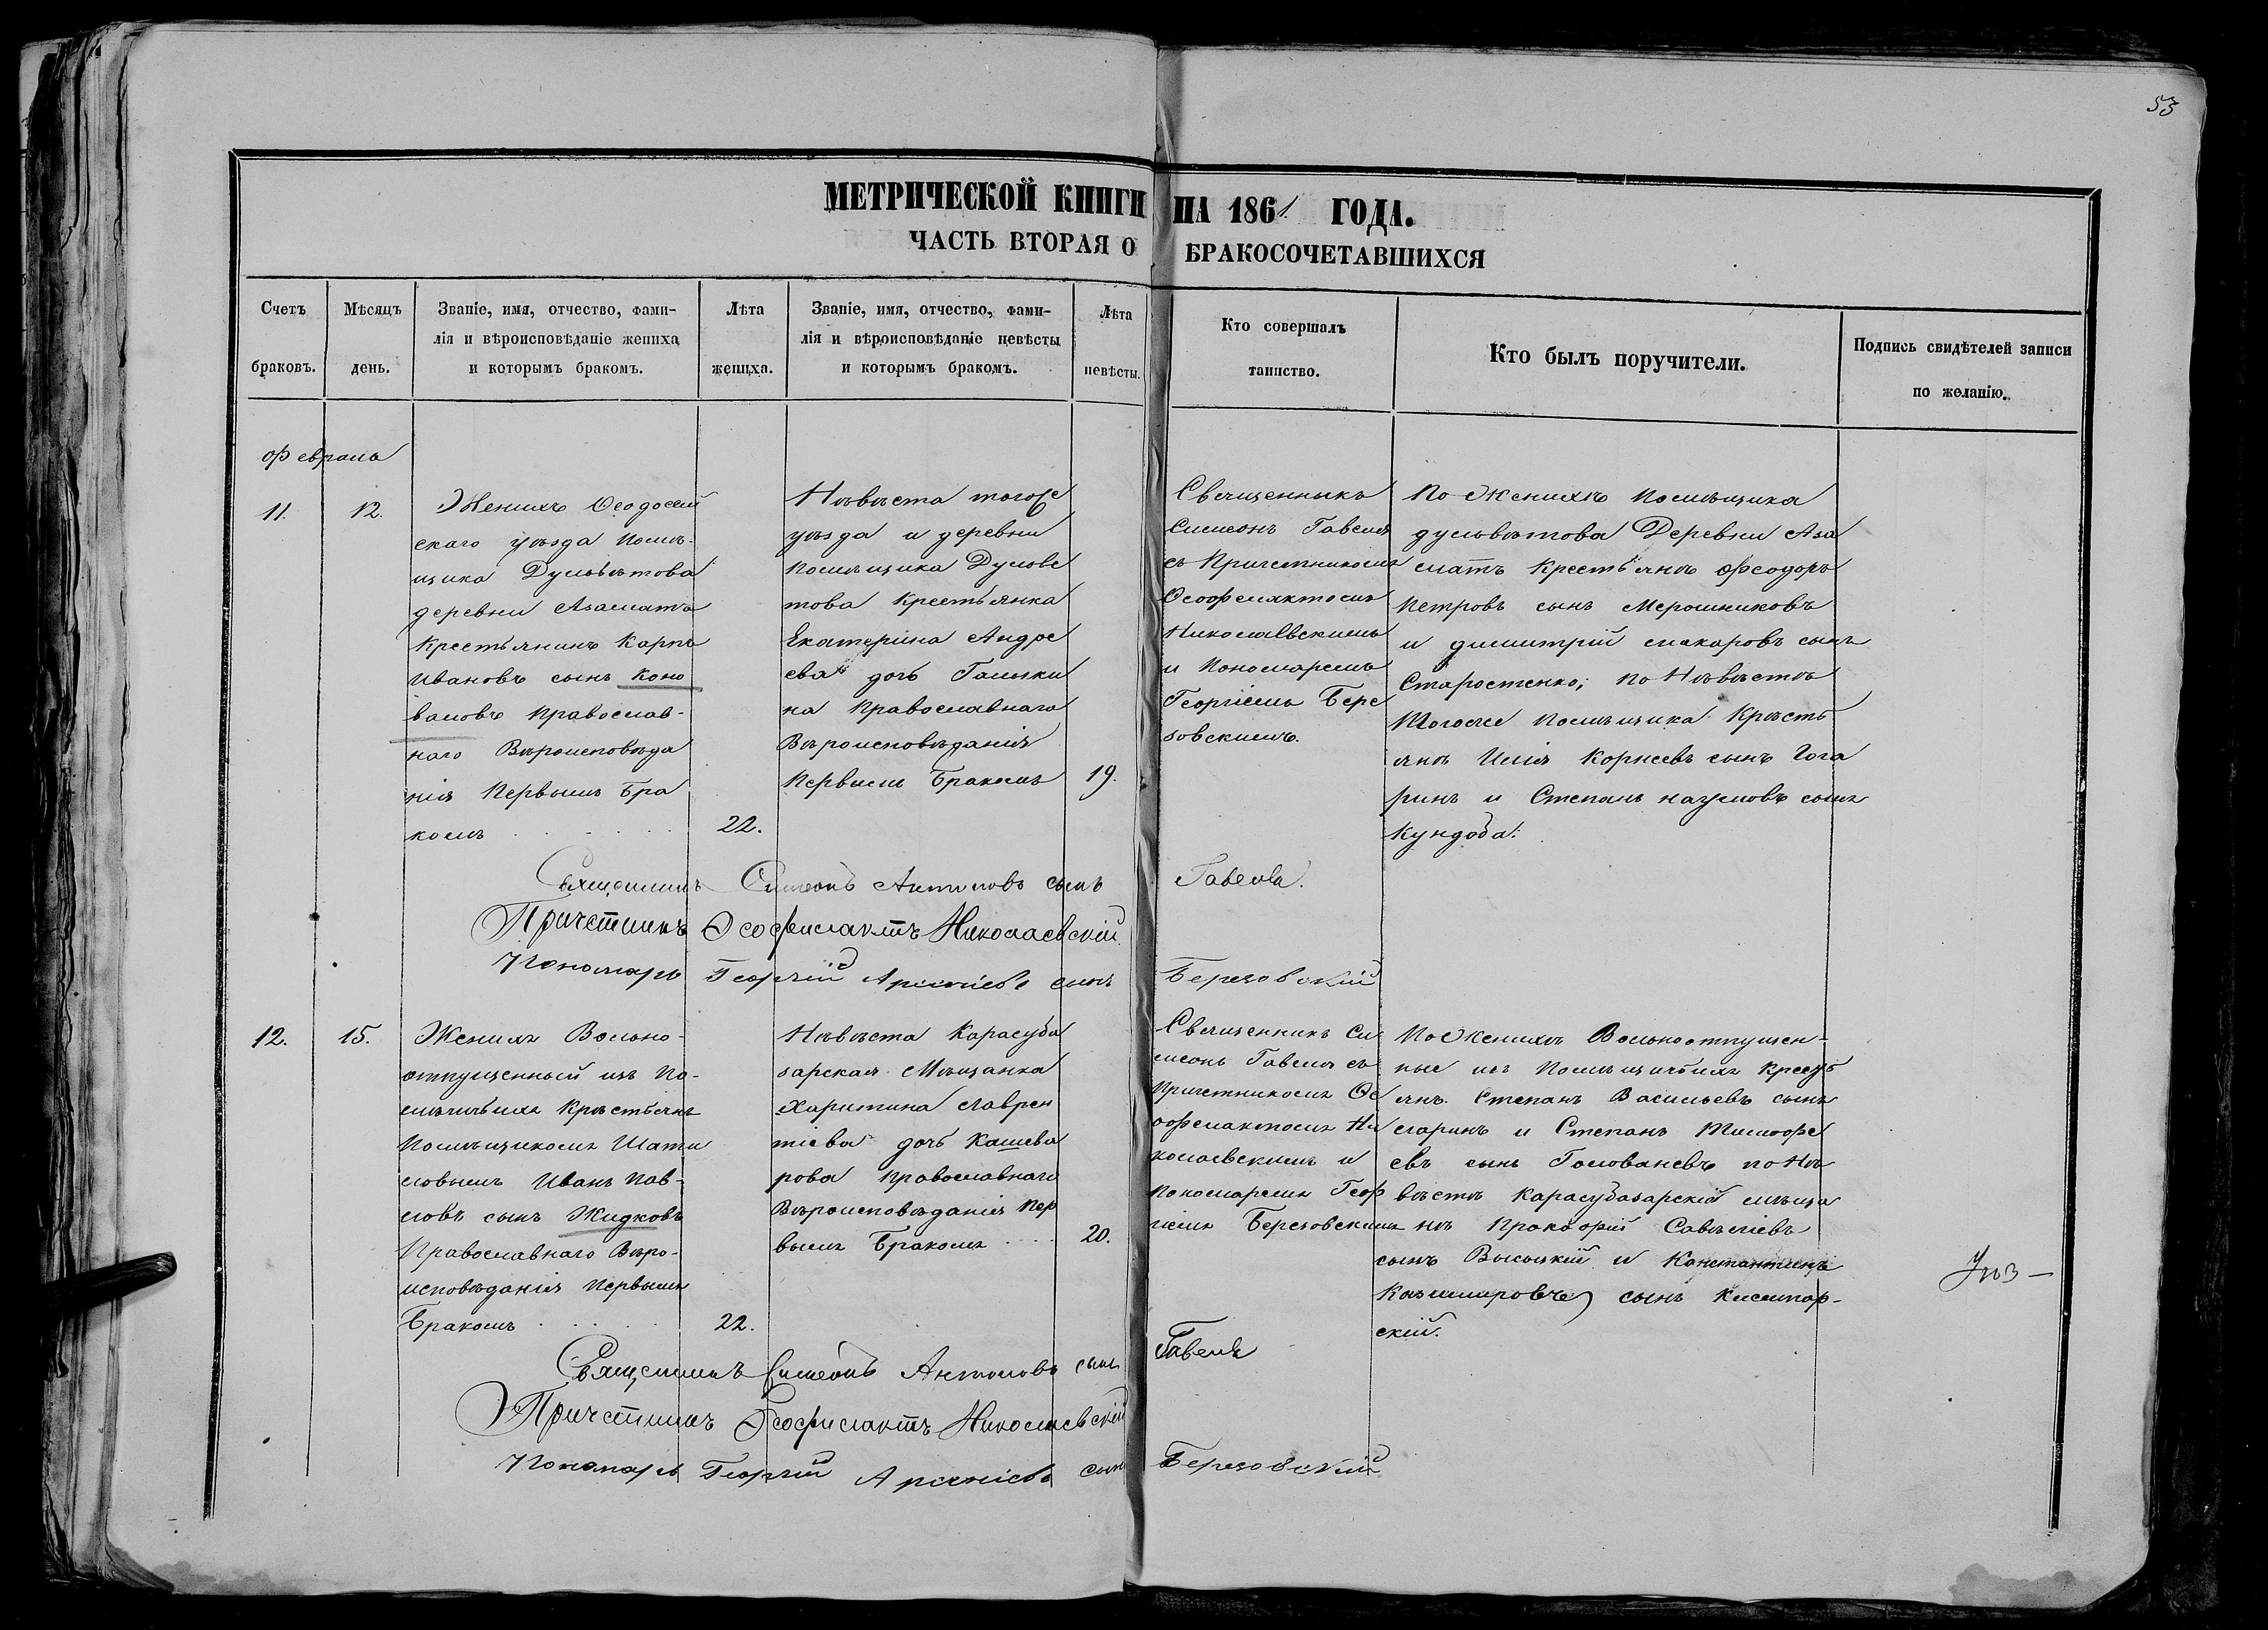 53
МЕТРИЧЕСКОЙ КНИГИ НА 1861 ГОДА.
ЧАСТЬ ВТОРАЯ О БРАКОСОЧЕТАВШИХСЯ
Счетъ браковъ.
Мѣсяцъ день.
Званіе, имя, отчество, фами-
лія и вѣроисповѣданіе жениха
и которымъ бракомъ.
Лѣта жениха.
Званіе, имя, отчество, фами-
лія и вѣроисповѣданіе невѣсты
и которымъ бракомъ.
Лѣта невѣсты.
Кто совершалъ
таинство.
Кто былъ поручители.
Подпись свидѣтелей записи
по желанію.
Февраль
11.
12.
Женихъ Ѳеодосій
скаго уѣзда помѣ-
щика Дульвѣтова
деревни Азаматъ
Крестьянинъ Карпъ
Ивановъ сынъ Коно
валовъ Православ-
наго Вѣроисповѣда
нія Первымъ бра
комъ
22.
Нѣвѣста тогоже
уѣзда и деревни
помѣщика Дулове
това Крестьянка
Екатерина Андре
ева дочь Галыки
на Православнаго
Вѣроисповѣданія
Первымъ Бракомъ
19.
Свещенникъ
Симеонъ Гавеля
съ Причетникомъ
Ѳеофилактомъ
Николаевскимъ
и Пономаремъ
Георгіемъ Бере
зовскимъ.
По Женихѣ помѣщика
дульвѣтова Деревни Аза
матъ Крестьянѣ Феодоръ
Петровъ сынъ Мерошниковъ
и димитрій макаровъ сынъ
Старостенко; по Нѣвѣстѣ
Тогоже помѣщика Крѣсть
янѣ Илія Корнеевъ сынъ Гога
ринъ и Степанъ наумовъ сынъ
Кундоба.
Священникъ Симеонъ Антоновъ сынъ Гавеля.
Причетникъ Ѳеофилактъ Николаевскій
Пономарь Георгій Арсеніевъ сынъ Березовскій
12.
15.
Женихъ Вольно-
отпущенный изъ По-
мѣщичьихъ Крѣстьянъ
Помѣщикомъ Шати
ловымъ Иванъ Пав-
ловъ сынъ Жидковъ
Православнаго Вѣро-
исповѣданія Первымъ
Бракомъ
22.
Нѣвѣста Карасуба
зарская Мѣщанка
Харитина Лаврен
тіева дочь Кашева
рова Православнаго
Вѣроисповѣданія Пер
вымъ Бракомъ
20.
Свещенникъ Си
меонъ Гавеля съ
Причетникомъ Ѳе
офилактомъ Ни
колаевскимъ и
Пономаремъ Геор
гіемъ Березовскимъ
По Женихѣ Вольноотпущен-
ные изъ Помѣщичьихъ Кресть
янъ. Степанъ Васильевъ сынъ
Маринъ и Степанъ Тимофе
евъ сынъ Голованевъ по Нѣ
вѣстѣ Карасубазарскій мѣща
нѣ Прокофій Савѣліевъ
сынъ Высоцкій и Константинъ
Казимировъ сынъ
скій.
Священникъ Симеонъ Антоновъ сынъ Гавеля
Причетникъ Ѳеофилактъ Николаевскій
Пономарь Георгій Арсеніевъ сынъ Березовскій